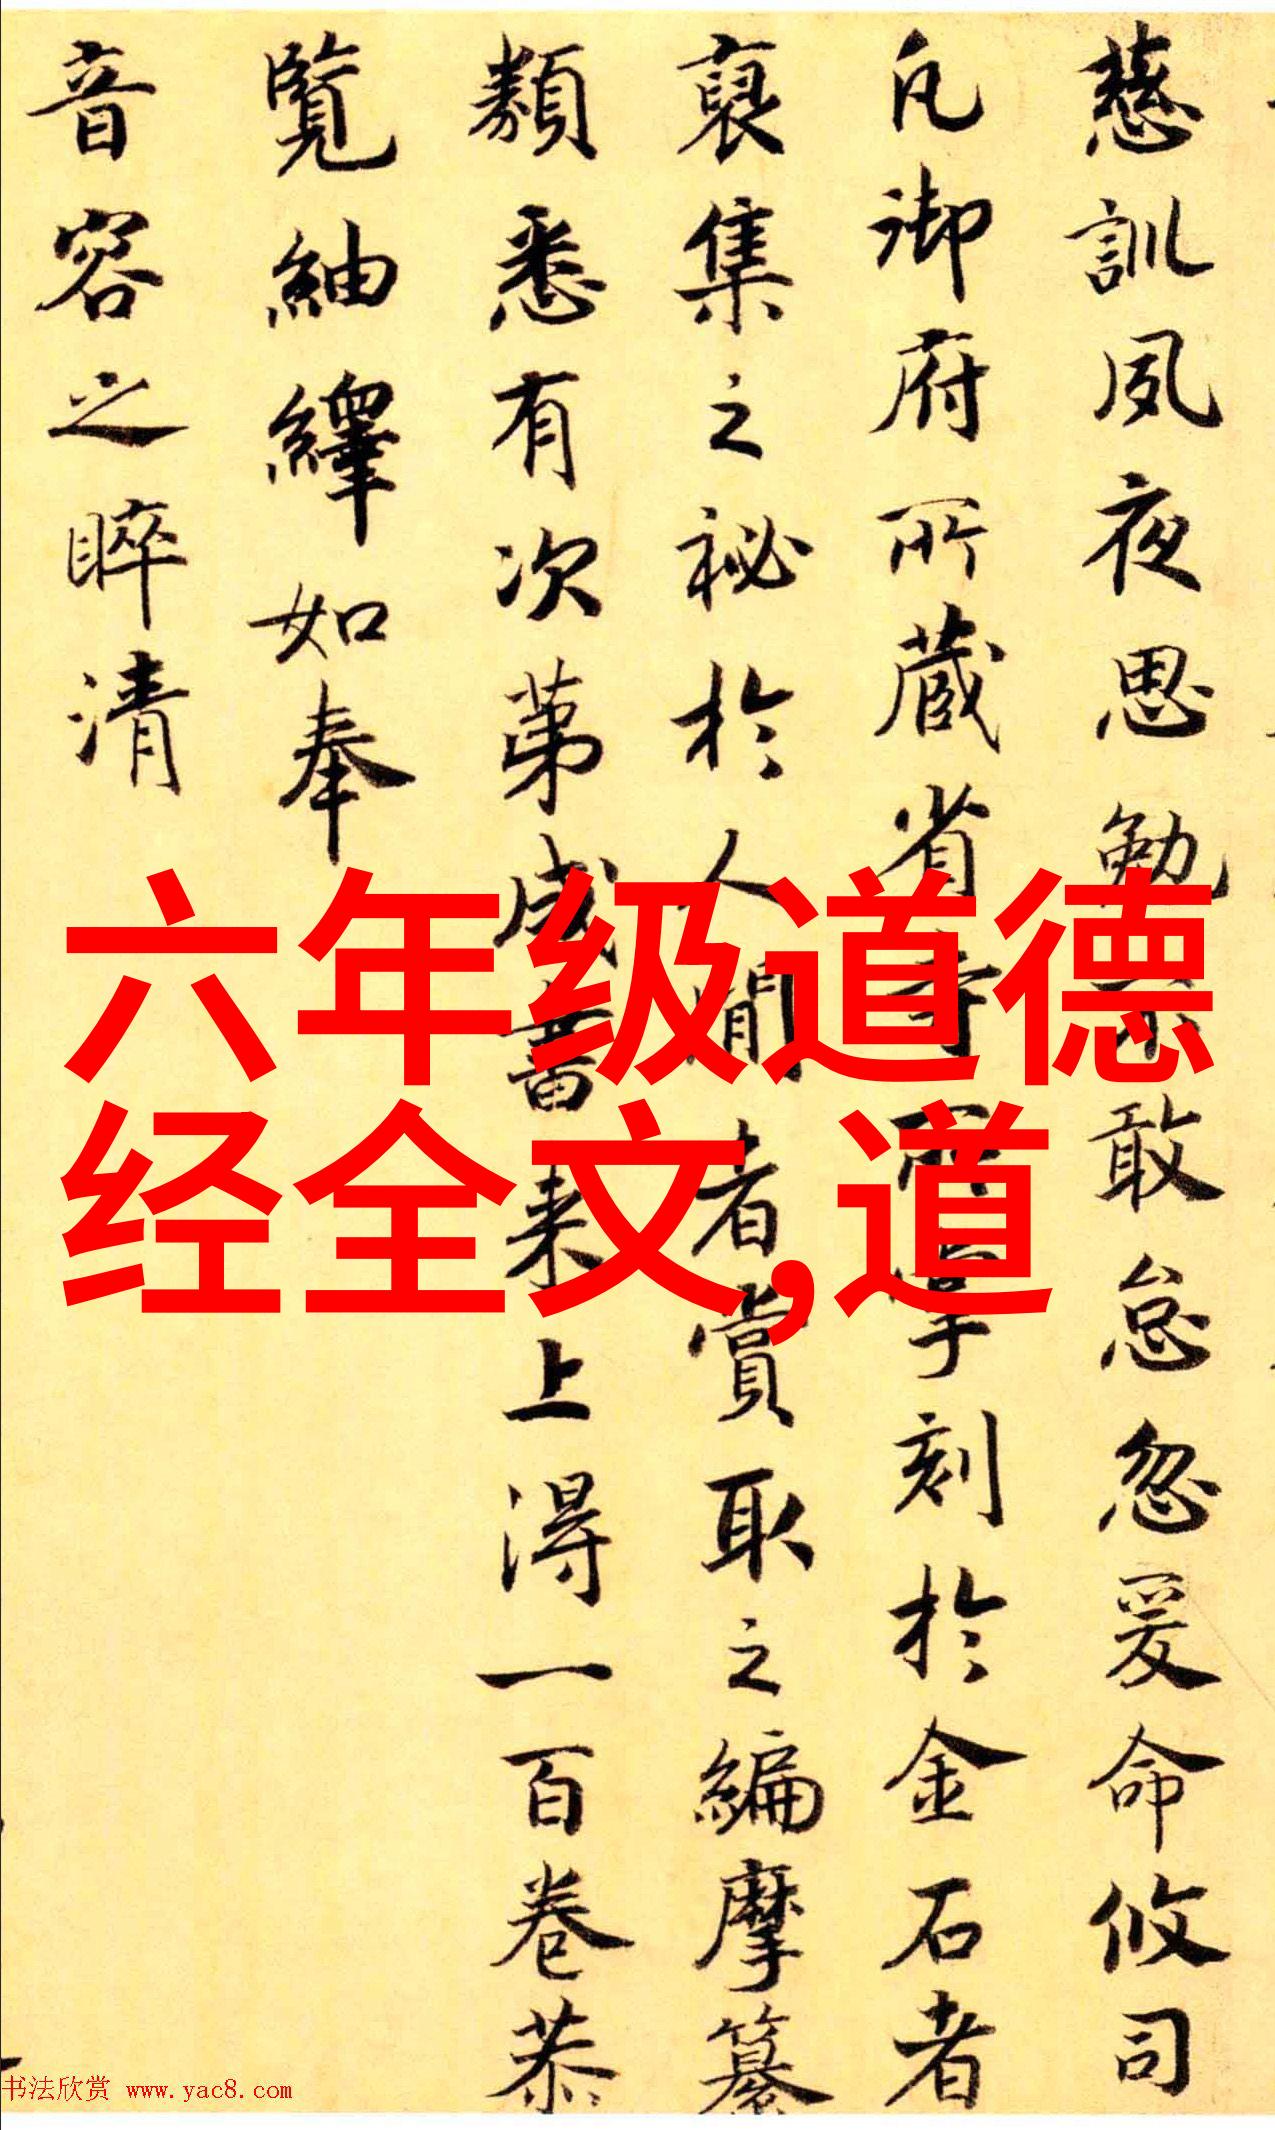 慈訓夙夜思勉不敢怠忽爰命攸司
凡御府所蔵省寺所掌刻於金石者
裒集之秘於人間者賞取之編摩纂
類悉有次第成書来上得一百卷恭
覽紬繹如奉
音容之睟清
六年级道德
经全文,道
书法欣赏 www.yac8.com